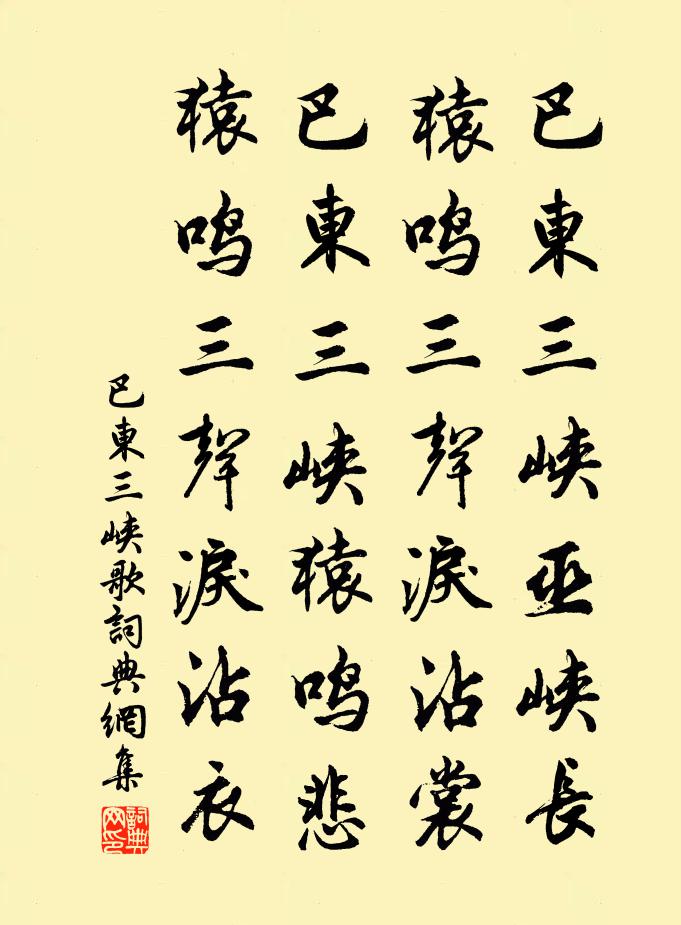 巴東三峽巫峽長
猿鳴三聲淚沾裳
巴東三峽猿鳴悲
猿鳴三聲淚沾衣
巴東三峽歌詞典網集
詞典网印